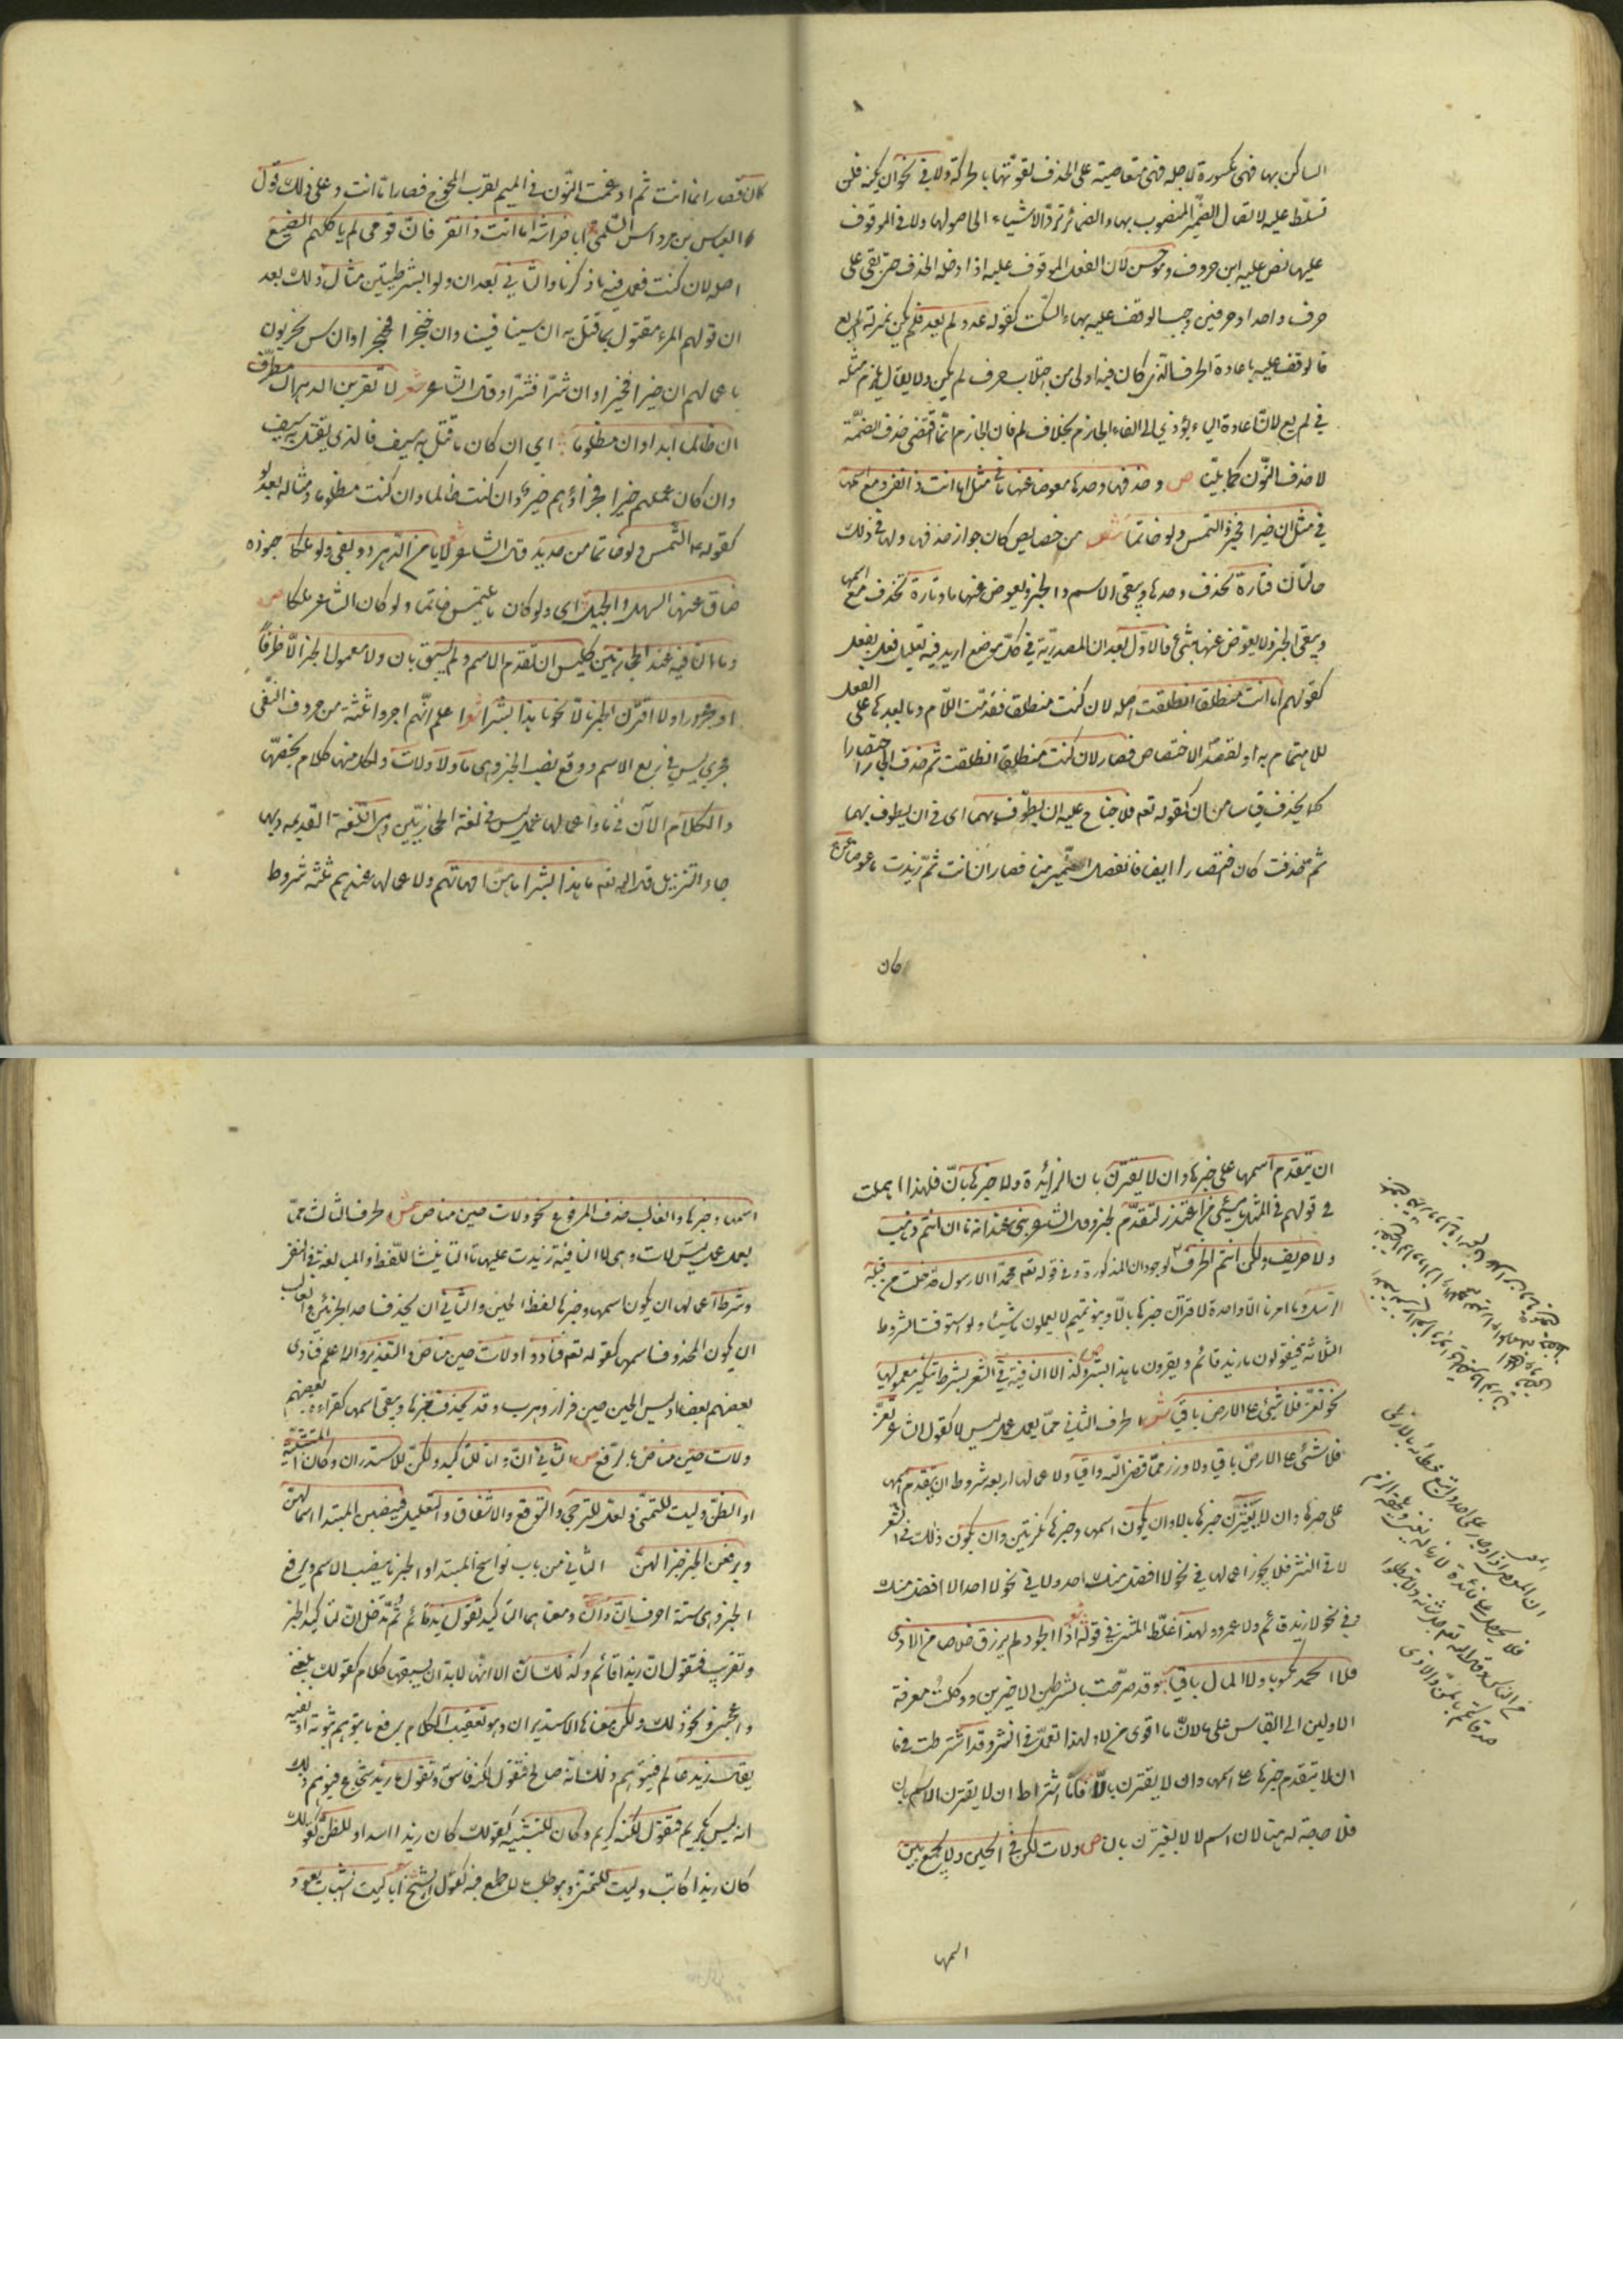 الساكن بها فهي مكسورة لاجله فهي متعاصية على الحذف لقوتها بالحركة ولا في نحو ان يكنه فلن
تسلط عليه لاتصال الضمير المنصوب بها والضمائر ترد الاشياء الى اصولها ولا في الموقوف
عليها نص عليه ابن خروف وهو حسن لان الفعل الموقوف عليه اذا دخله الحذف حتى بقي على
حرف واحد او حرفين وجب الوقف عليه بهاء السكت كقوله عه ولم يعه فلم يكن بمنزلة لم يع
فالوقف عليه باعادة الحرف الذي كان فيه اولى من اجتلاب حرف لم يكن ولا يقال يلزم مثله
في لم يع لان اعادة الياء يؤدي الى الغاء الجازم بخلاف لم فان الجازم انما اقتضى حذف الضمة
لا حذف النون كما بينا ص وحذفها وحدها معوضا عنها ما في مثل اما انت ذا نفر ومع اسمها
في مثل ان خيرا فخير والتمس ولو خاتما ش من خصايص كان جواز حذفها ولها في ذلك
حالتان فتارة تحذف وحدها ويبقى الاسم والخبر ويعوض عنها ما وتارة تحذف مع اسمها
ويبقى الخبر ولا يعوض عنها شيء فالاول بعد ان المصدرية في كل موضع اريد فيه تعليل فعل بفعل
كقولهم اما انت منطلقا انطلقت اصله لان كنت منطلقا فقدمت اللام وما بعدها على الفعل
للاهتمام به او لقصد الاختصاص فصار لان كنت منطلقا انطلقت ثم حذف الجار اختصارا
كما يحذف قياسا من ان كقوله تعم فلا جناح عليه ان يطوف بهما اى في ان يطوف بهما
ثم حذفت كان اختصارا ايضا فانفصل الضمير منها فصار ان انت ثم زيدت ما عوضا عن
كان
كان فصار ان ما انت ثم ادغمت النون في الميم لقرب المخرج فصار اما انت وعلى ذلك قول
العباس بن مرداس السلمي ابا خراشة اما انت ذا نفر فان قومي لم ياكلهم الضبع
اصله لان كنت فعمل فيه ما ذكرنا والثاني بعد ان ولو الشرطيتين مثال ذلك بعد
ان قولهم المرء مقتول بما قتل به ان سيفا فسيف وان خنجرا فخنجر والناس مجزيون
باعمالهم ان خيرا فخير وان شرا فشر وقال الشاعر شعر لا تقربن الدهر ال مطرف
ان ظالما ابدا وان مظلوما اي ان كان ما قتل به سيف فالذي يقتل به سيف
وان كان عملهم خيرا فجزاؤهم خير وان كنت ظالما وان كنت مظلوما ومثاله بعد لو
كقوله ع التمس ولو خاتما من حديد قال الشاعر لا يامن الدهر ذو بغي ولو ملكا جنوده
ضاق عنها السهل والجبل اى ولو كان ما يلتمس خاتما ولو كان الشاعر ملكا ص
وما النافية عند الحجازيين كليس ان تقدم الاسم ولم يسبق بان ولا معمول الخبر الا ظرفا
او مجرورا ولا اقترن الخبر بالا نحو ما هذا بشرا ش اعلم انهم اجروا ثلثة من حروف النفي
مجرى ليس في رفع الاسم ووقع نصب الخبر وهى ما ولا ولات ولكل منها كلام يخصها
والكلام الآن في ما واعمالها عمل ليس في لغة الحجازيين وهى اللغة القديمه وبها
جاء التنزيل قال الله تعم ما هذا بشرا ما هن امهاتهم ولاعمالها عندهم ثلثه شروط
ان يتقدم اسمها على خبرها وان لا يقترن بان الزائدة ولا خبرها بالا فلهذا اهملت
في قولهم في المثل ما مسيئ من اعتذر لتقدم الخبر وقال الشاعر بني غدانة ما ان انتم ذهب
ولا صريف ولكن انتم الخزف لوجود ان المذكورة وفي قوله تعم وما محمد الا رسول قد خلت من قبله
الرسل وما امرنا الا واحدة لاقتران خبرها بالا وبنو تميم لا يعملون ما شيئا ولو استوفت الشروط
الثلاثة فيقولون ما زيد قائم ويقرون ما هذا بشر ص وكذا لا النافية في الشعر بشرط تنكير معموليها
نحو تعز فلا شيء على الارض باقيا ش الحرف الثاني مما يعمل عمل ليس لا كقول الشاعر تعز
فلا شيء على الارض باقيا ولا وزر مما قضى الله واقيا ولاعمالها اربعه شروط ان يتقدم اسمها
على خبرها وان لا يقترن خبرها بالا وان يكون اسمها وخبرها نكرتين وان يكون ذلك في الشعر
لا في النثر فلا يجوز اعمالها في نحو لا افضل منك احد ولا في نحو لا احد الا افضل منك
ولا في نحو لا زيد قائم ولا عمرو ولهذا غلط المتنبي في قوله اذا الجود لم يرزق خلاصا من الاذى
فلا الحمد مكسوبا ولا المال باقيا وقد صرحت بالشرطين الاخيرين ووكلت معرفة
الاولين الى القياس على ما لان ما اقوى من لا ولهذا تعمل في النثر وقد اشترطت في ما
ان لا يتقدم خبرها على اسمها وان لا يقترن بالا فاما اشتراط ان لا يقترن الاسم بان
فلا حاجة له هنا لان اسم لا لا يقترن بان ص ولات لكن في الحين ولا يجمع بين
اسمها
اسمها وخبرها والغالب حذف المرفوع نحو ولات حين مناص ش الحرف الثالث مما
يعمل عمل ليس لات وهى لا النافية زيدت عليها التاء لتأنيث اللفظ او المبالغة في النفي
وشرط اعمالها ان يكون اسمها وخبرها لفظ الحين والثاني ان يحذف احد الجزئين والغالب
ان يكون المحذوف اسمها كقوله تعم فنادوا ولات حين مناص والتقدير والله اعلم فنادى
بعضهم بعضا ان ليس الحين حين فرار وهرب وقد يحذف خبرها ويبقى اسمها كقراءة بعضهم
ولات حين مناص بالرفع ص الثاني ان وان للتاكيد ولكن للاستدراك وكان للتشبيه
او الظن وليت للتمني ولعل للترجي والتوقع والاشفاق والتعليل فينصبن المبتدا اسما لهن
ويرفعن الخبر خبرا لهن الثاني من باب نواسخ المبتدا والخبر ما ينصب الاسم ويرفع
الخبر وهى ستة احرف ان وان ومعناهما التاكيد تقول زيد قائم ثم تدخل ان لتاكيد الخبر
وتقريره فتقول ان زيدا قائم وكذلك ان الا انها لا بد ان يسبقها كلام كقولك بلغني
واعجبني ونحو ذلك ولكن معناها الاستدراك وهو تعقيب الكلام برفع ما يتوهم ثبوته او نفيه
يقال زيد عالم فيتوهم ذلك انه صالح فتقول لكنه فاسق وتقول ما زيد شجاع فيتوهم ذلك
انه ليس بكريم فتقول لكنه كريم وكان للتشبيه كقولك كان زيدا اسد او للظن كقولك
كان زيدا كاتب وليت للتمني وهو طلب ما لا طمع فيه كقول الشيخ الا ليت الشباب يعود